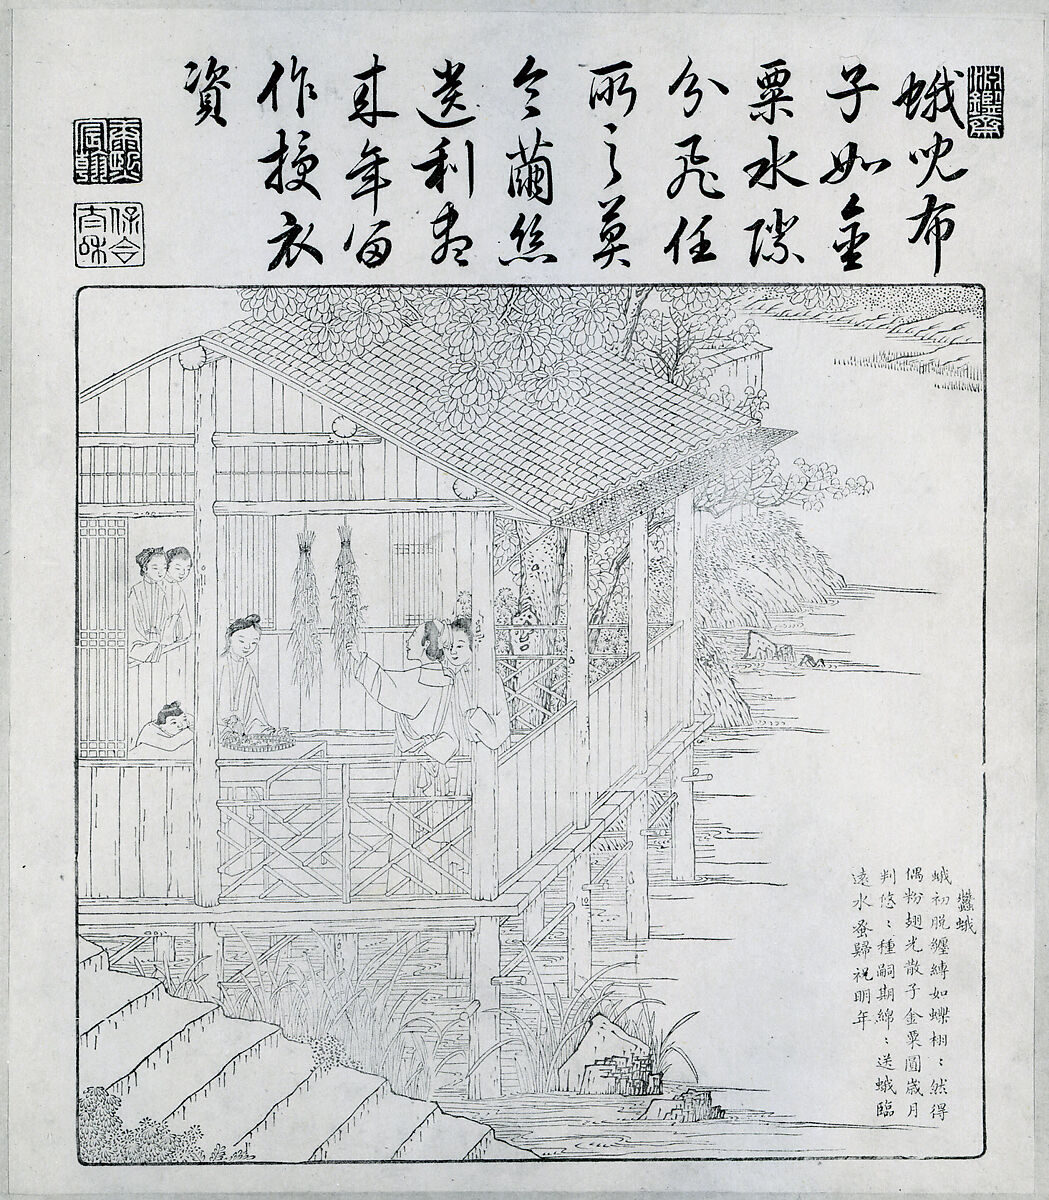 淵鑒齋
蛾兒布
子如金
粟水際
分飛任
所之莫
令繭絲
遺利盡
來年留
作授衣
資
康熙宸翰
保合太和
蠶蛾
蛾初脫纏縛如蝶栩〻然得
偶粉翅光散子金粟圓歲月
判悠〻種嗣期綿〻送蛾臨
遠水蚤歸祝明年